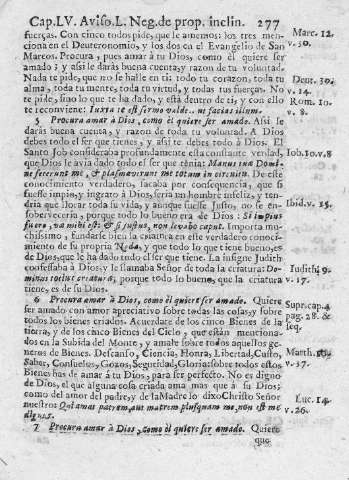 Cap. LV. Aviso. L. Neg. de prop. inclin. 277
fuerças. Con cinco todos pide, que le amemos: los tres men-
ciona en el Deuteronomio, y los dos en el Evangelio de San
Marcos. Procura, pues amar à tu Dios, como èl quiere ser
amado; y assi le daràs buena cuenta, y razon de tu voluntad.
Nada te pide, que no se halle en ti: todo tu coraçon, toda tu
alma, toda tu mente, toda tu virtud, y todas tus fuerças. No
te pide, sino lo que te ha dado, y està dentro de ti; y con ello
te reconviene:
5 Procura amar à Dios, como èl quiere ser amado. Assi le
daràs buena cuenta, y razon de toda tu voluntad. A Dios
debes todo el ser que tienes, y assi te debes todo à Dios. El
Santo Job considerava profundamente esta constante verdad,
que Dios le avia dado todo el ser que tenia: Manus tuæ Domi-
ne fecerunt me, & plasmaverunt me totum in circuitu. De este
conocimiento verdadero, sacaba por consequencia, que si
fuesse impio, y ingrato à Dios, seria un hombre infeliz, y ten-
dria que llorar toda su vida, y aunque fuesse Justo, no se en-
sobervecería, porque todo lo bueno era de Dios: Si impius
fuero, væ mihi est: & si justus, non levabo caput. Importa mu-
chissimo, fundarse bien la criatura en este verdadero conoci-
miento de su propria Nada, y que todo lo que tiene bueno, es
de Dios, que le ha dado todo el ser que tiene. La insigne Judith
confessaba à Dios, y le llamaba Señor de toda la criatura: Do-
minus totius creaturæ; porque todo lo bueno, que la criatura
tiene, es de su Dios.
6 Procura amar à Dios, como èl quiere ser amado. Quiere
ser amado con amor apreciativo sobre todas las cosas, y sobre
todos los bienes criados. Acuerdate de los cinco Bienes de la
tierra, y de los cinco Bienes del Cielo, que estàn menciona-
dos en la Subida del Monte, y amale sobre todos aquellos ge-
neros de Bienes. Descanso, Ciencia, Honra, Libertad, Gusto,
Saber, Consuelos, Gozos, Seguridad, Gloria: sobre todos estos
Bienes has de amar à tu Dios, para ser perfecto. No es digno
de Dios, el que alguna cosa criada ama mas que à su Dios;
como del amor del padre, y de la Madre lo dixo Christo Señor
nuestro: Qui amat patrem, aut matrem plusquam me, non est me
dignus.
7 Procura amar à Dios, como èl quiere ser amado. Quiere
que
Marc. 12.
v. 30.
Deut. 30.
v. 14.
Rom. 10.
v. 8.
Job. 10. v. 8
Ibid. v. 15.
Judith. 9.
v. 17.
Supr. cap. 4
pag. 28. &
seq.
v. 37.
Luc. 14.
v. 26.